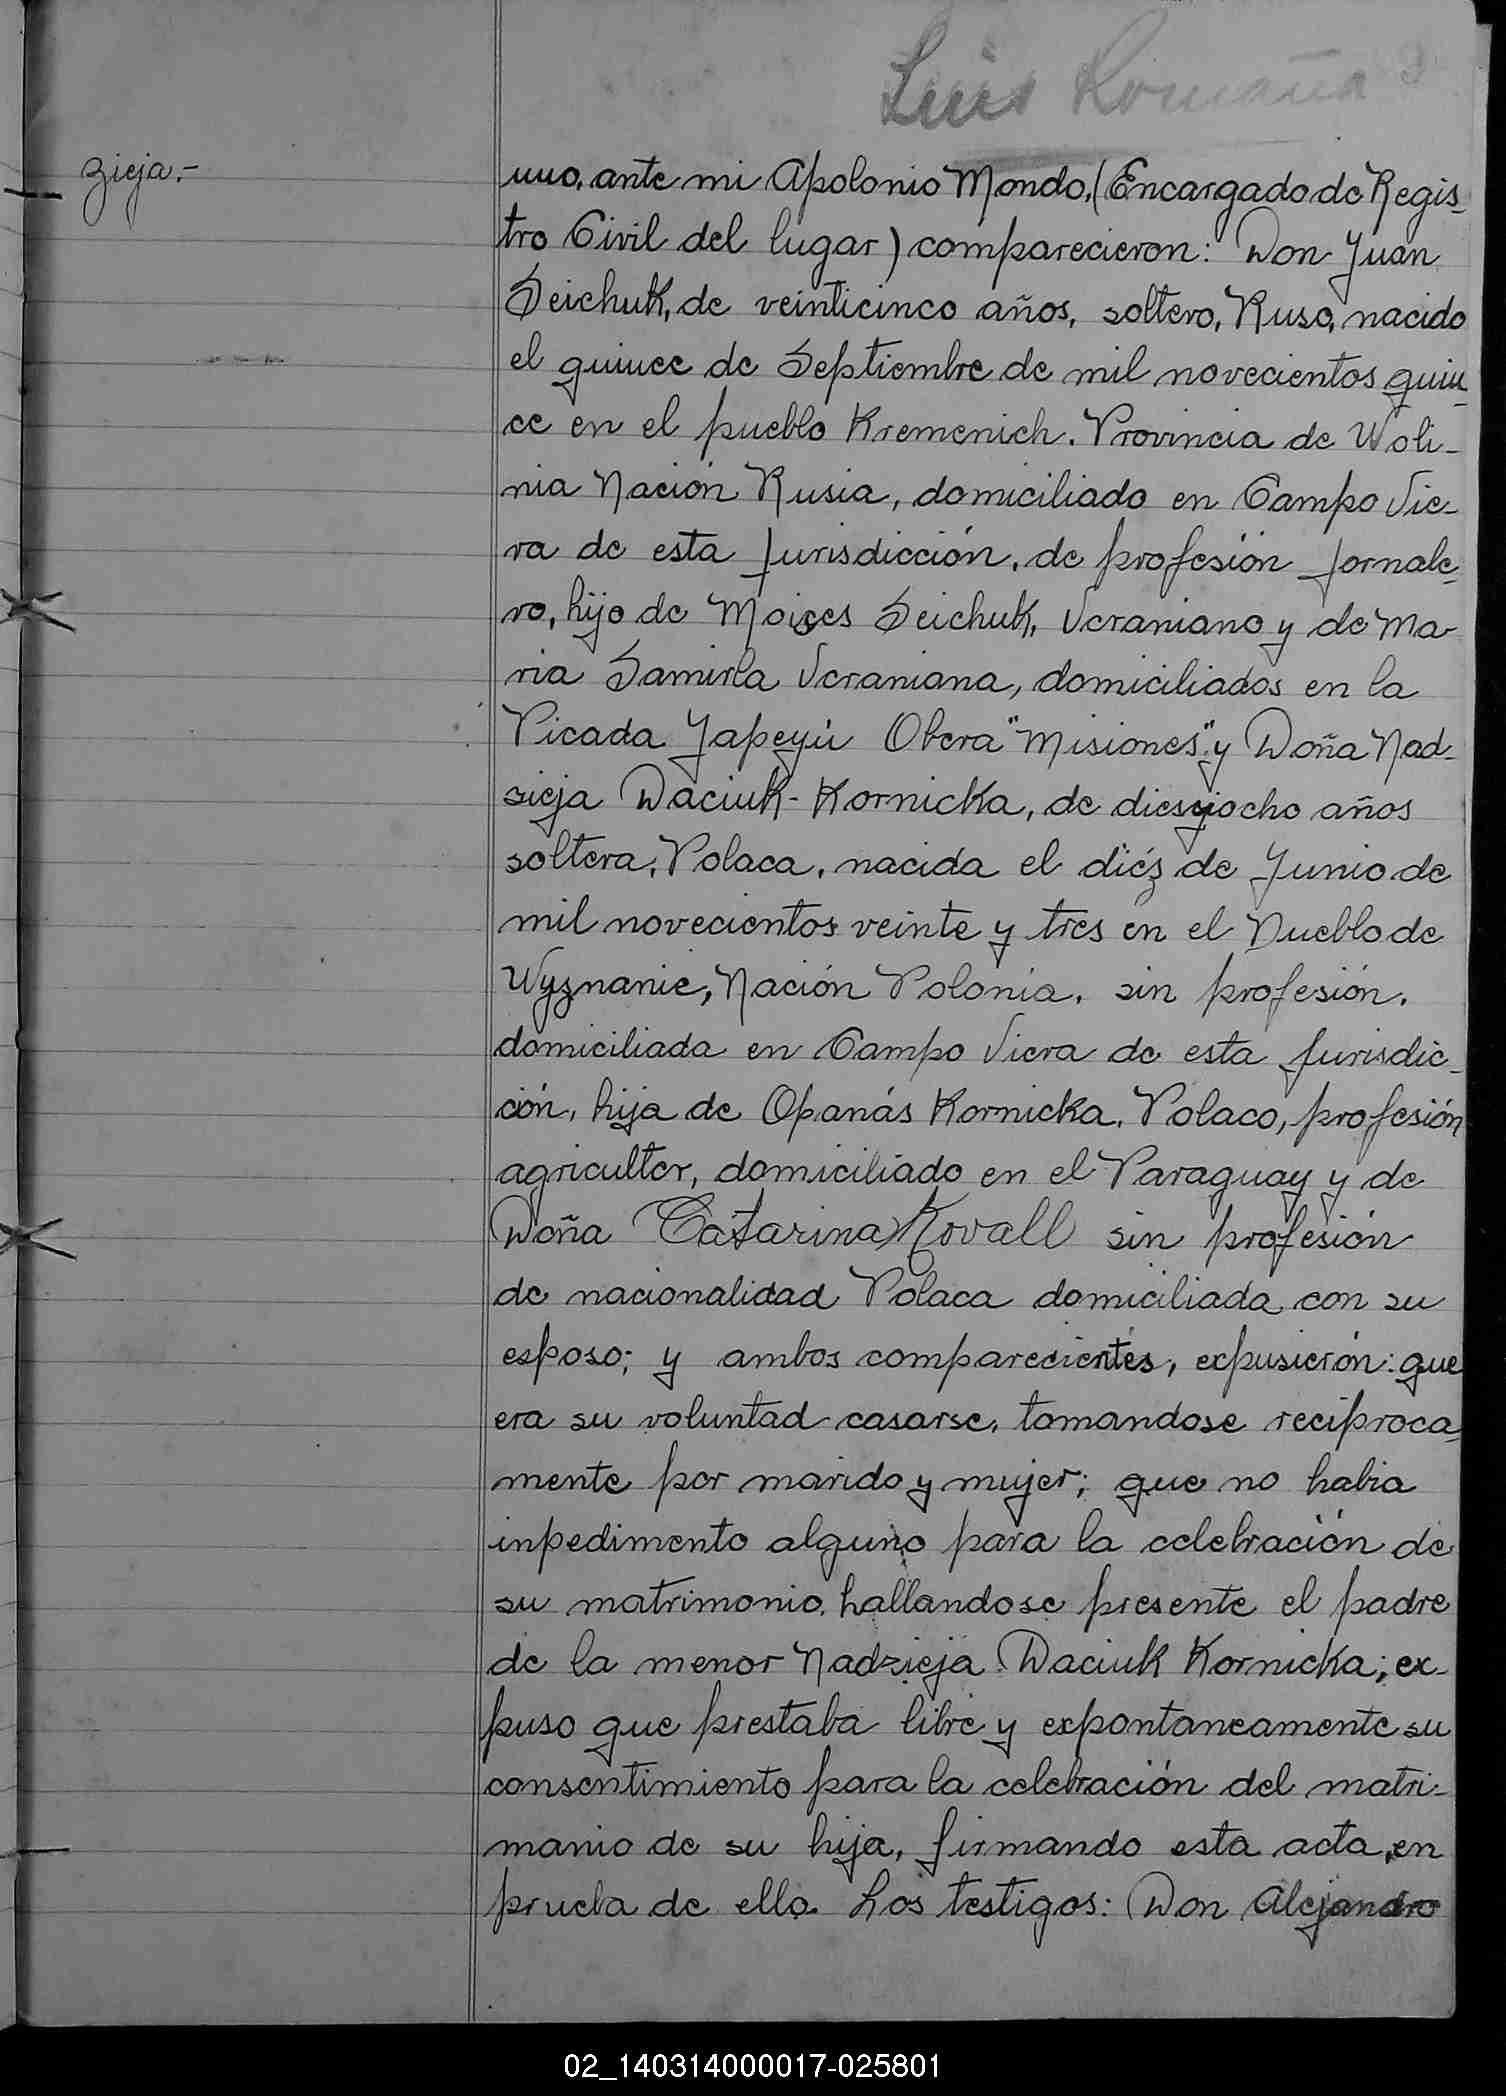 Luis Romaña 3
zieja.-
uno, ante mi Apolonio Mondo, (Encargado de Regis-
tro Civil del lugar) comparecieron: Don Juan
Seichuk, de veinticinco años, soltero, Ruso, nacido
el quince de Septiembre de mil novecientos quin-
ce en el pueblo Kremenich. Provincia de Woli-
nia Nación Rusia, domiciliado en Campo Vie-
ra de esta Jurisdicción, de profesión Jornale-
ro, hijo de Moises Seichuk, Ucraniano y de Ma-
ria Samirla Ucraniana, domiciliados en la
Picada Yapeyú Obera "Misiones" y Doña Nad-
sieja Daciuk-Kornicka, de diesyocho años
soltera, Polaca, nacida el diéz de Junio de
mil novecientos veinte y tres en el Pueblo de
Wyznanie, Nación Polonia, sin profesión,
domiciliada en Campo Viera de esta Jurisdic-
ción, hija de Opanás Kornicka, Polaco, profesión
agricultor, domiciliado en el Paraguay y de
Doña Catarina Kovall sin profesión
de nacionalidad Polaca domiciliada con su
esposo; y ambos comparecientes, expusierón: que
era su voluntad casarse, tomandose reciproca-
mente por marido y mujer; que no habia
inpedimento alguno para la celebración de
su matrimonio, hallandose presente el padre
de la menor Nadzieja Daciuk Kornicka; ex-
puso que prestaba libre y expontaneamente su
consentimiento para la celebración del matri-
manio de su hija, firmando esta acta, en
prueba de ello. Los testigos: Don Alejandro
02_140314000017-025801